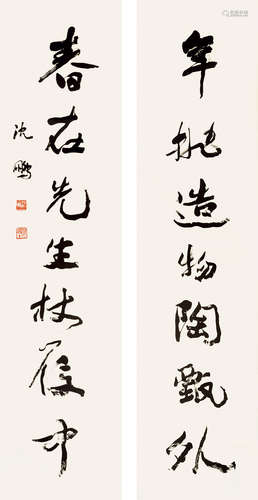 年挑造物陶甄外
春在先生杖履中
沈鹏